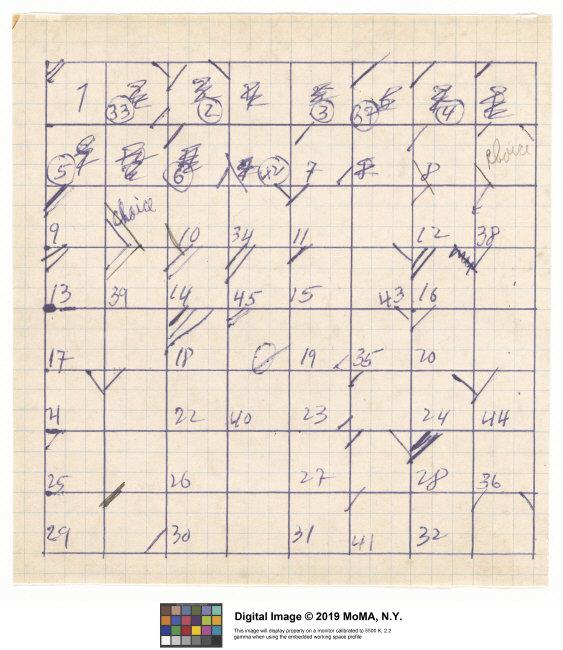 1 33 2 3 37 4
5 6 42 7 8 choice
9 choice 10 34 11 12 38
13 39 14 45 15 43 16
17 18 0 19 35 20
21 22 40 23 24 44
25 26 27 28 36
29 30 31 41 32
Digital Image © 2019 MoMA, N.Y.
This image will display properly on a monitor calibrated to 6500 K, 2.2
gamma when using the embedded working space profile